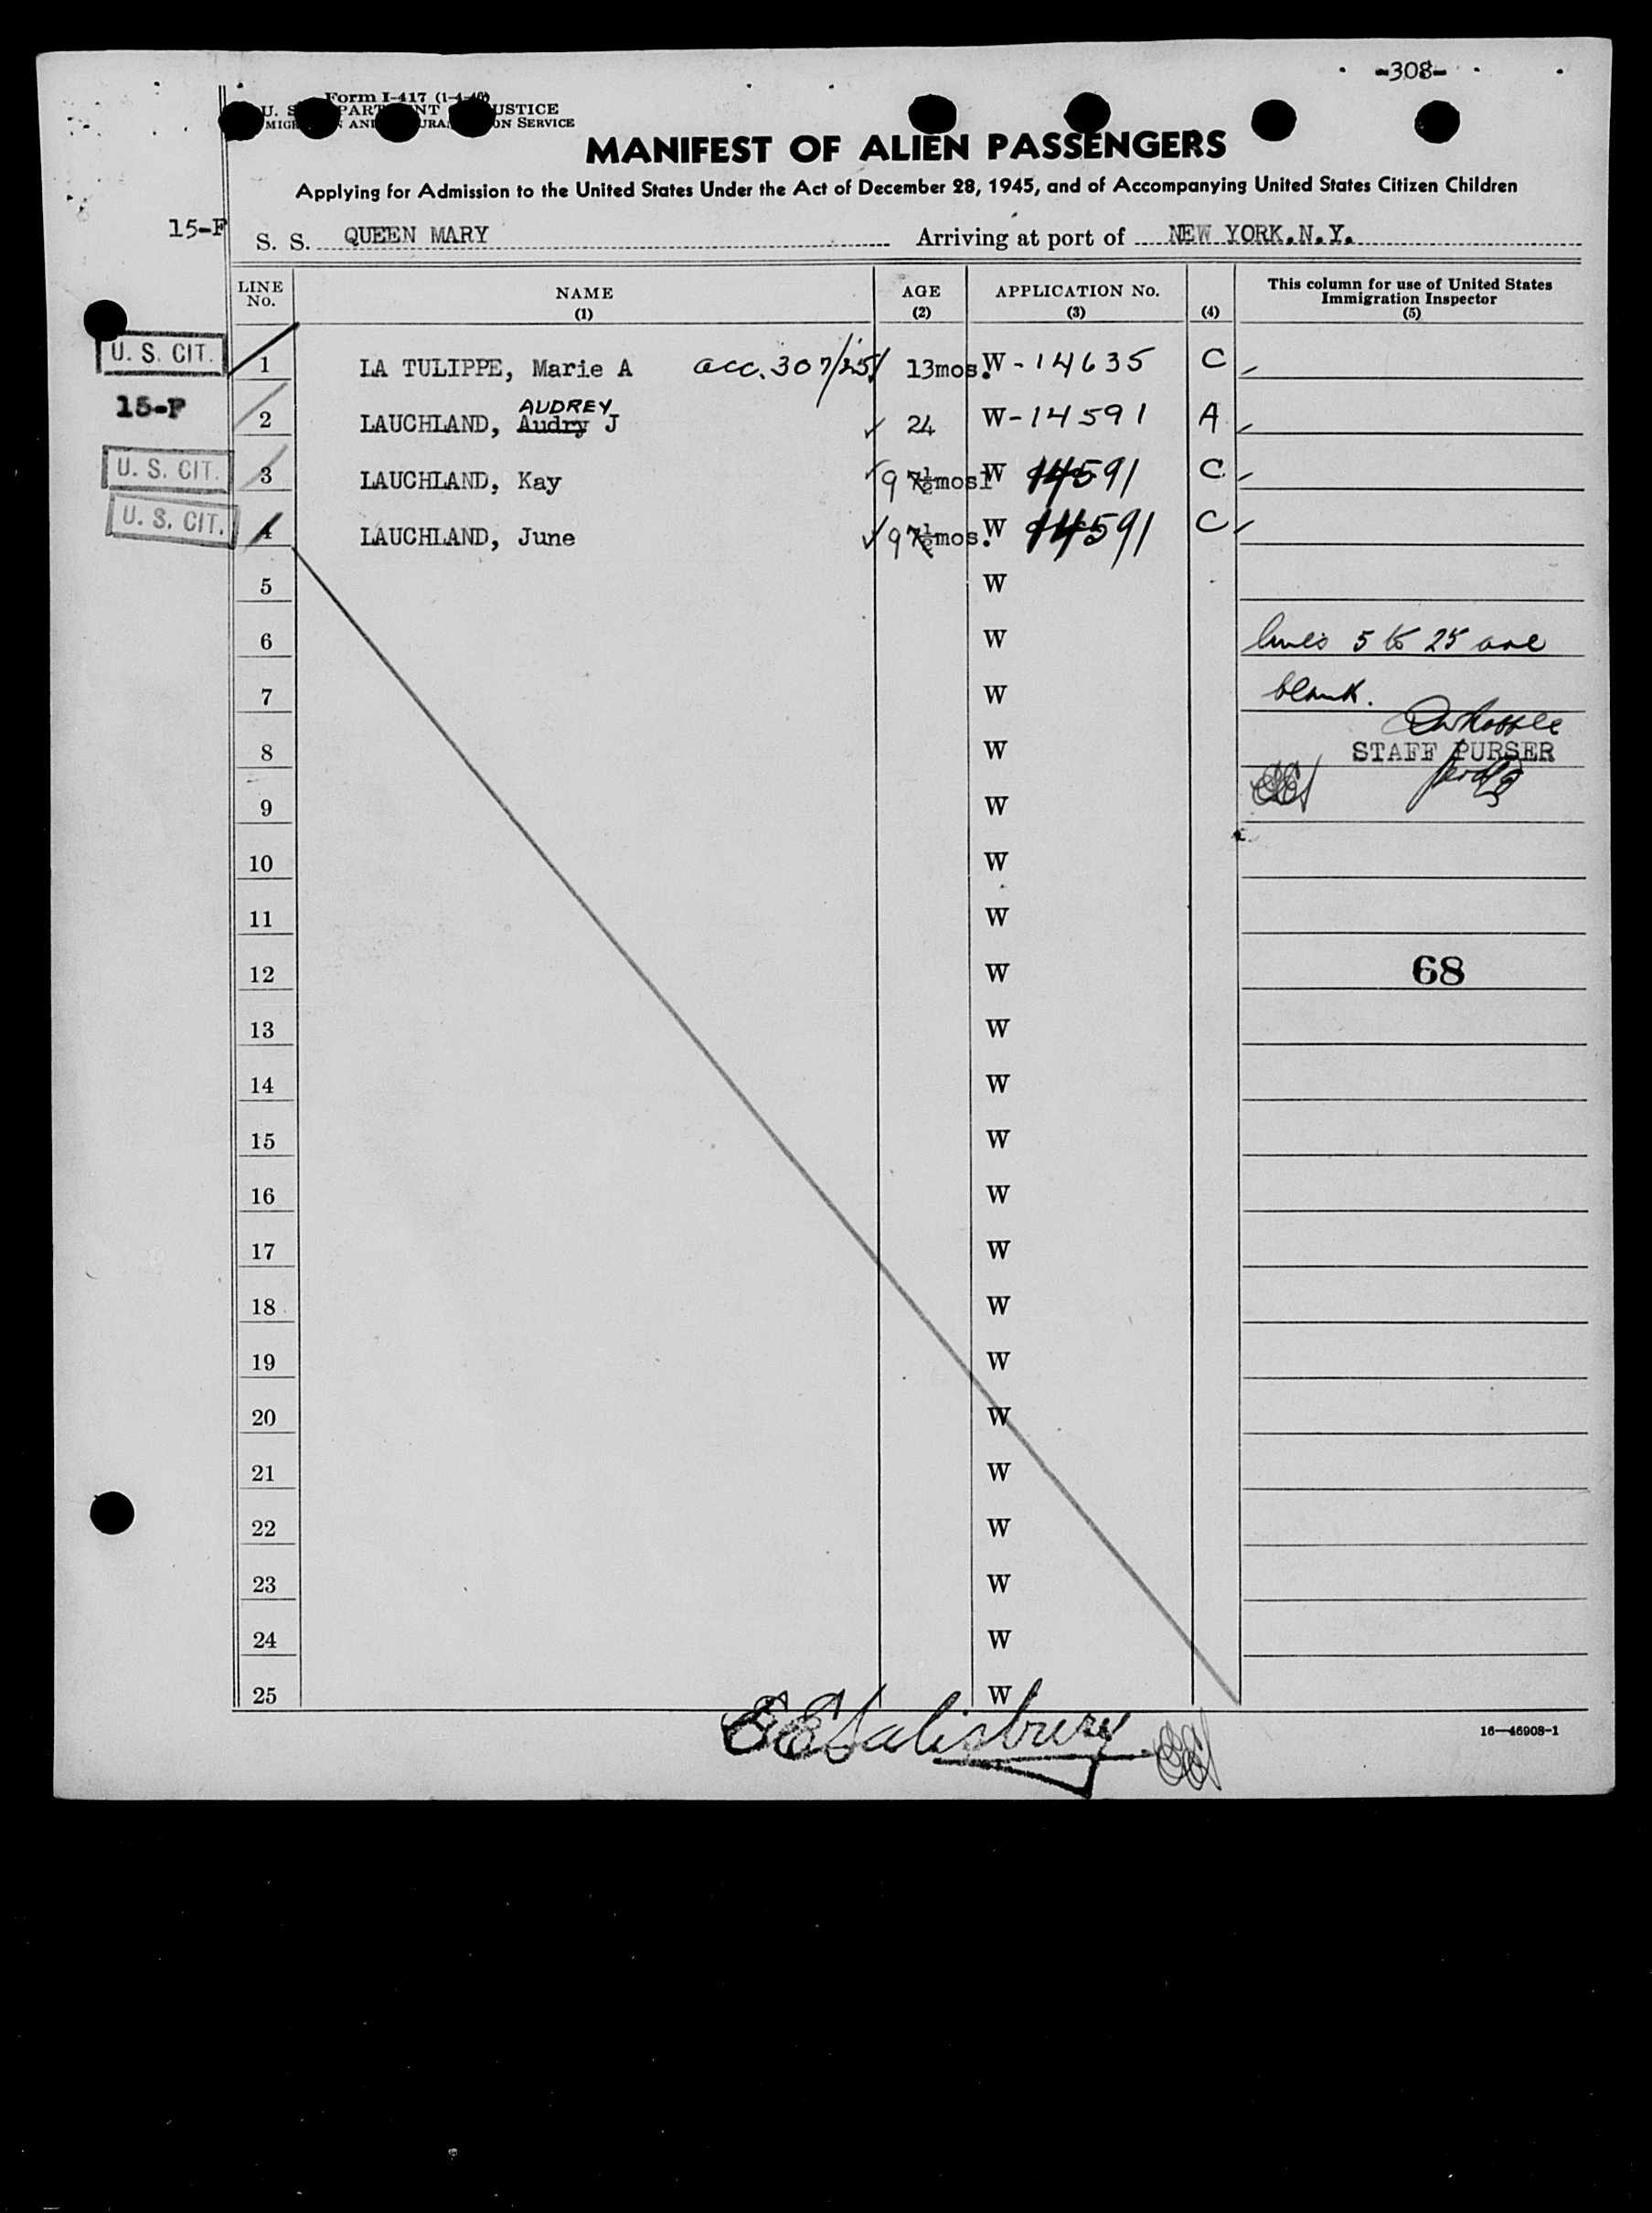 -308-
Form I-417 (1-4-46)
U. S. DEPARTMENT OF JUSTICE
IMMIGRATION AND NATURALIZATION SERVICE
MANIFEST OF ALIEN PASSENGERS
Applying for Admission to the United States Under the Act of December 28, 1945, and of Accompanying United States Citizen Children
15-F
S. S. QUEEN MARY Arriving at port of NEW YORK.N.Y.
LINE No. NAME (1) AGE (2) APPLICATION No. (3) (4) This column for use of United States Immigration Inspector (5)
U. S. CIT. 1 LA TULIPPE, Marie A acc. 307/25 13mos. W-14635 C
15-F
AUDREY
2 LAUCHLAND, Audry J 24 W-14591 A
U. S. CIT. 3 LAUCHLAND, Kay 9 7½mos W 14591 C
U. S. CIT. 4 LAUCHLAND, June 9 7½mos. W 14591 C
5 W
6 W lines 5 to 25 are
7 W blank.
8 W STAFF PURSER
9 W
10 W
11 W
12 W 68
13 W
14 W
15 W
16 W
17 W
18 W
19 W
20 W
21 W
22 W
23 W
24 W
25 W
EESalisbury
16—46908-1